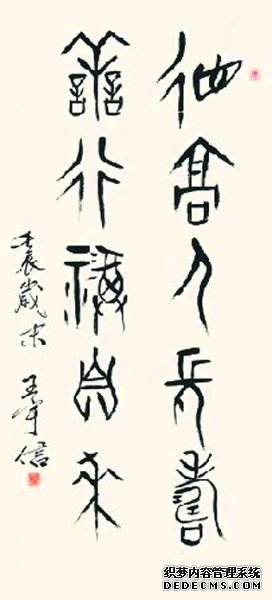 德高人長壽
善行福自來
壬辰歲末 王宇信
织梦内容管理系统
DEDECMS.COM